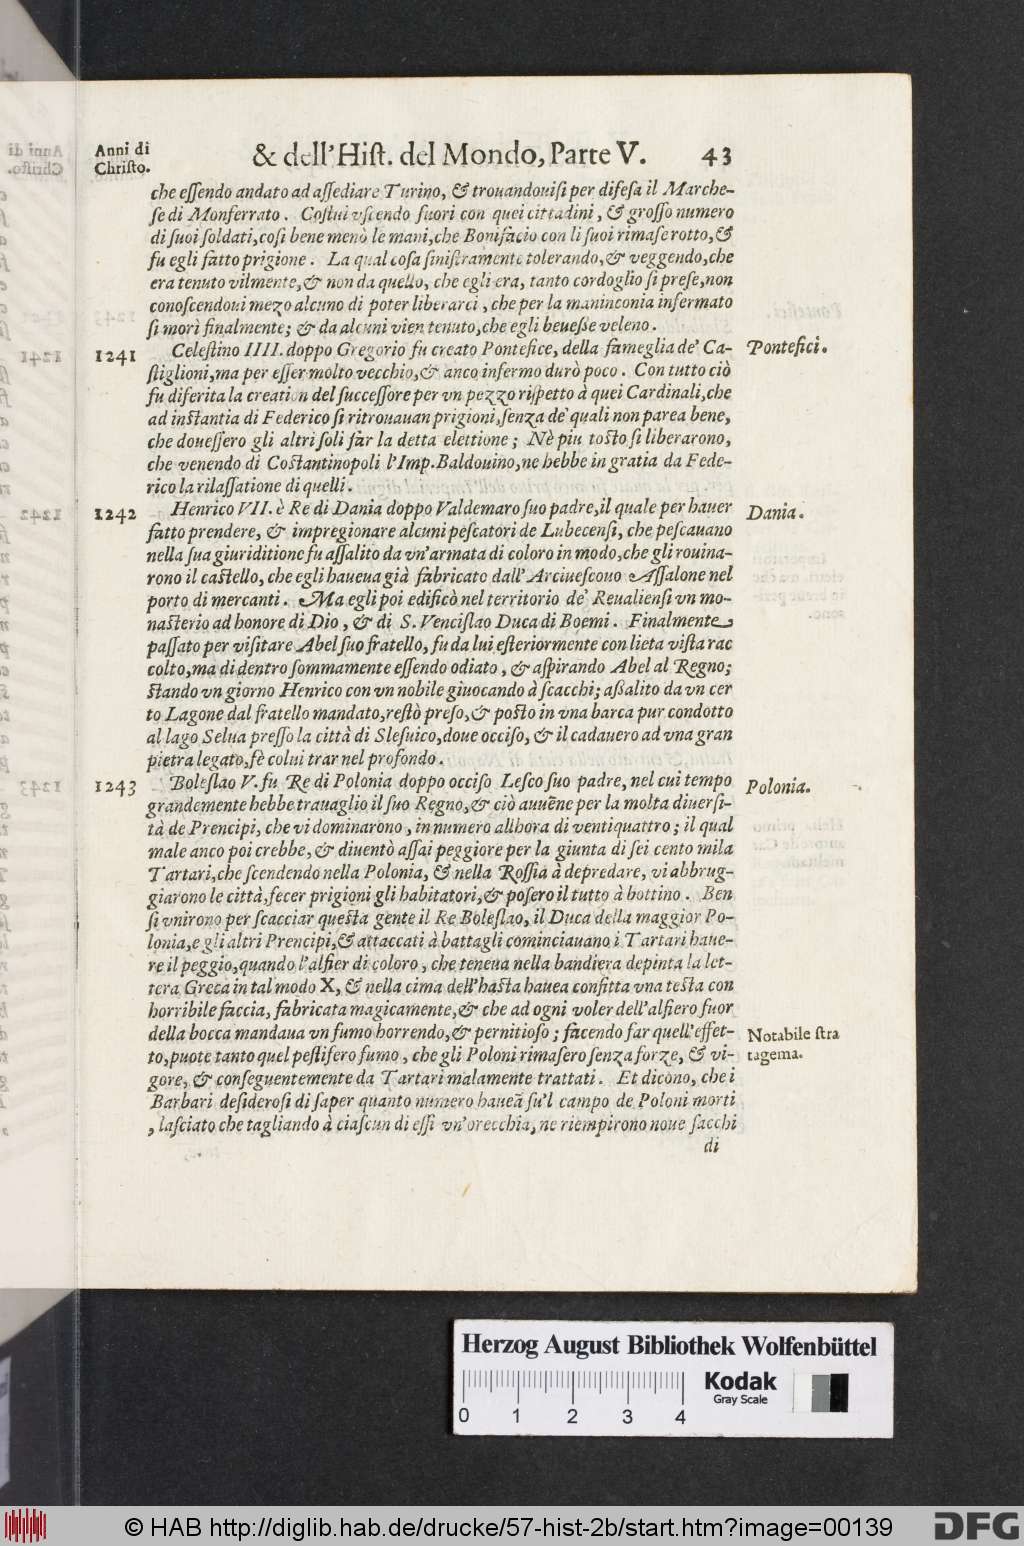 Anni di
Chriſto.
& dell'Hiſt. del Mondo, Parte V. 43
che eſſendo andato ad aſſediare Turino, & trouandouiſi per difeſa il Marche-
ſe di Monferrato. Coſtui vſcendo fuori con quei cittadini, & groſſo numero
di ſuoi ſoldati, coſi bene menò le mani, che Bonifacio con li ſuoi rimaſe rotto, &
fu egli fatto prigione. La qual coſa ſiniſtramente tolerando, & veggendo, che
era tenuto vilmente, & non da quello, che egli era, tanto cordoglio ſi preſe, non
conoſcendoui mezo alcuno di poter liberarci, che per la maninconia infermato
ſi morì finalmente; & da alcuni vien tenuto, che egli beueſſe veleno.
1241 Celeſtino IIII. doppo Gregorio fu creato Pontefice, della fameglia de' Ca- Pontefici.
ſtiglioni, ma per eſſer molto vecchio, & anco infermo durò poco. Con tutto ciò
fu diferita la creation del ſucceſſore per vn pezzo riſpetto à quei Cardinali, che
ad inſtantia di Federico ſi ritrouauan prigioni, ſenza de' quali non parea bene,
che doueſſero gli altri ſoli far la detta elettione; Nè piu toſto ſi liberarono,
che venendo di Coſtantinopoli l'Imp. Baldouino, ne hebbe in gratia da Fede-
rico la rilaſſatione di quelli.
1242 Henrico VII. è Re di Dania doppo Valdemaro ſuo padre, il quale per hauer Dania.
fatto prendere, & impregionare alcuni peſcatori de Lubecenſi, che peſcauano
nella ſua giuriditione fu aſſalito da vn'armata di coloro in modo, che gli rouina-
rono il caſtello, che egli haueua già fabricato dall'Arciueſcouo Aſſalone nel
porto di mercanti. Ma egli poi edificò nel territorio de' Reualienſi vn mo-
naſterio ad honore di Dio, & di S. Venciſlao Duca di Boemi. Finalmente
paſſato per viſitare Abel ſuo fratello, fu da lui eſteriormente con lieta viſta rac
colto, ma di dentro ſommamente eſſendo odiato, & aſpirando Abel al Regno;
ſtando vn giorno Henrico con vn nobile giuocando à ſcacchi; aßalito da vn cer
to Lagone dal fratello mandato, reſtò preſo, & poſto in vna barca pur condotto
al lago Selua preſſo la città di Sleſuico, doue occiſo, & il cadauero ad vna gran
pietra legato, fè colui trar nel profondo.
1243 Boleſlao V. fu Re di Polonia doppo occiſo Leſco ſuo padre, nel cui tempo Polonia.
grandemente hebbe trauaglio il ſuo Regno, & ciò auuēne per la molta diuerſi-
tà de Prencipi, che vi dominarono, in numero allhora di ventiquattro; il qual
male anco poi crebbe, & diuentò aſſai peggiore per la giunta di ſei cento mila
Tartari, che ſcendendo nella Polonia, & nella Roſſia à depredare, vi abbrug-
giarono le città, fecer prigioni gli habitatori, & poſero il tutto à bottino. Ben
ſi vnirono per ſcacciar queſta gente il Re Boleſlao, il Duca della maggior Po-
lonia, e gli altri Prencipi, & attaccati à battagli cominciauano i Tartari haue-
re il peggio, quando l'alfier di coloro, che teneua nella bandiera depinta la let-
tera Greca in tal modo X, & nella cima dell'haſta hauea confitta vna teſta con
horribile faccia, fabricata magicamente, & che ad ogni voler dell'alfiero fuor
della bocca mandaua vn fumo horrendo, & pernitioſo; facendo far quell'effet- Notabile ſtra
to, puote tanto quel peſtifero fumo, che gli Poloni rimaſero ſenza forze, & vi- tagema.
gore, & conſeguentemente da Tartari malamente trattati. Et dicono, che i
Barbari deſideroſi di ſaper quanto numero haueā ſu'l campo de Poloni morti
, laſciato che tagliando à ciaſcun di eſſi vn'orecchia, ne riempirono noue ſacchi
di
Herzog August Bibliothek Wolfenbüttel
Kodak
Gray Scale
0 1 2 3 4
© HAB http://diglib.hab.de/drucke/57-hist-2b/start.htm?image=00139
DFG